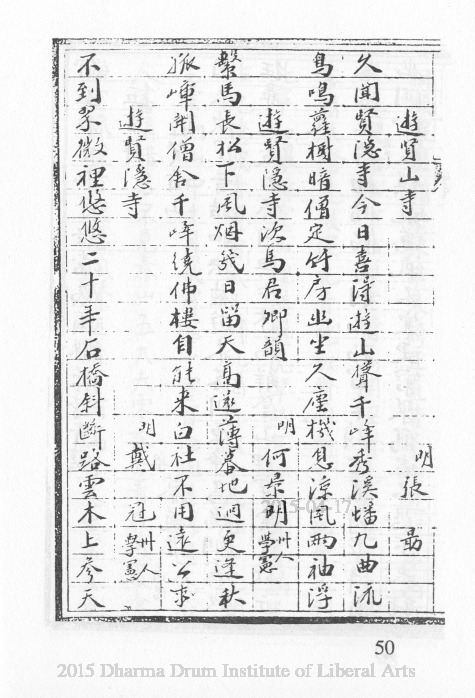 遊賢山寺
明張勗
久聞賢隐寺今日喜淂遊山聳千峰秀溪蟠九曲流
鳥鳴蘿樹暗僧定竹房幽坐久塵機息涼風兩袖浮
遊賢隱寺次馬君卿韻
明何景明州人學憲
繫馬長松下風烟幾日留天髙遠薄暮地迥更逢秋
孤嶂開僧舍千峰繞佛樓自能来白社不用遠公求
遊賢隱寺
明戴冠州人學憲
不到翠微裡悠悠二十年石橋斜斷路雲木上參天
2015-04-17
50
2015 Dharma Drum Institute of Liberal Arts